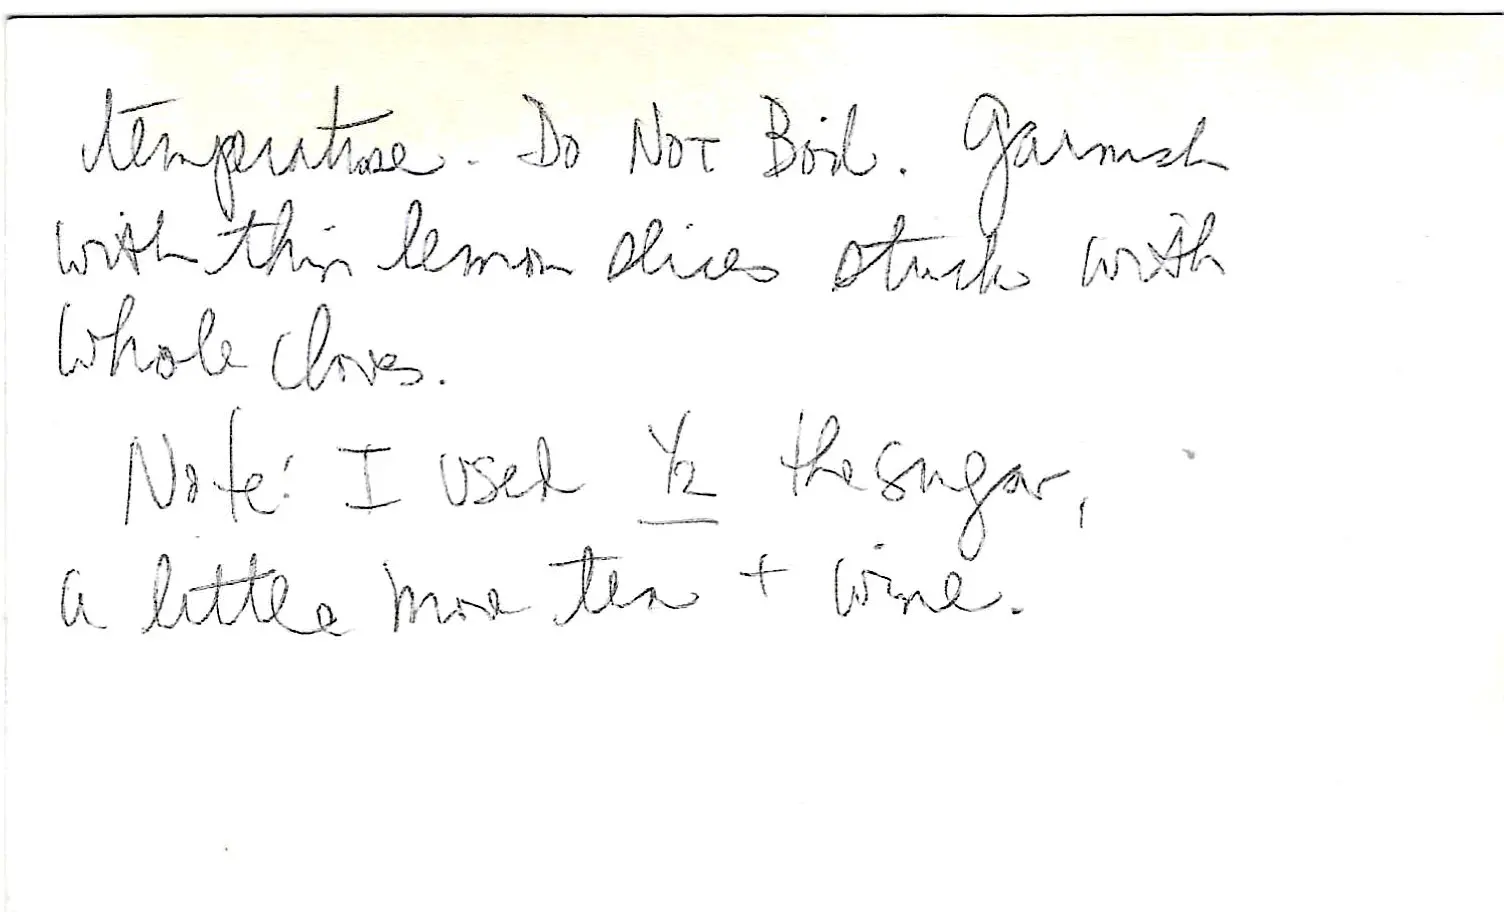 temperature. Do NOT Boil. Garnish
with thin lemon slices stuck with
whole cloves.
Note: I used 1/2 the sugar,
a little more tea + wine.